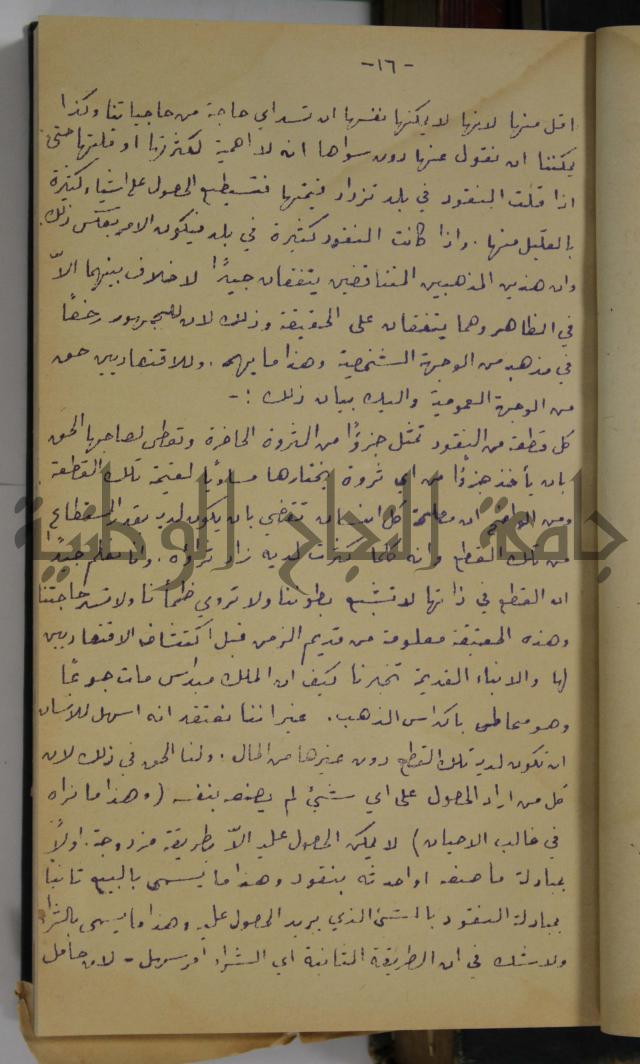 -١٦-
اقل منها لانها لا يمكنها نفسها ان تسد اي حاجة من حاجياتنا وكذا
يمكننا ان نقول عنها دون سواها انه لا اهمية لكثرتها او قلتها حتى
اذا قلت النقود في بلد تزداد قيمتها فنستطيع الحصول على اشياء كثيرة
بالقليل منها. واذا كانت النقود كثيرة في بلد فيكون الامر بعكس ذلك.
وان هذين المذهبين المتناقضين يتفقان جيدًا لا خلاف بينهما الاّ
في الظاهر وهما يتفقان على الحقيقة وذلك لان للجمهور
في مذهبه من الوجهة الشخصية وهذا ما يهمه. وللاقتصاديين حق
من الوجهة العمومية واليك بيان ذلك :-
كل قطعة من النقود تمثل جزءًا من الثروة الحاضرة وتعطى لصاحبها الحق
بان يأخذ جزءًا من اي ثروة يختارها مساويًا لقيمة تلك القطعة
ومن الواضح ان مصلحة كل انسان تقضي بان يكون لديه بقدر المستطاع
من تلك القطع وانه كلما كثرت لديه زاد ثراؤه. وانا نعلم جيدًا
ان القطع في ذاتها لا تشبع بطوننا ولا تروي ظمأنا ولا تسد حاجتنا
وهذه الحقيقة معلومة من قديم الزمن قبل اكتشاف الاقتصاديين
لها والانباء القديمة تخبرنا كيف ان الملك ميداس مات جوعًا
وهو محاطى باكداس الذهب. غير اننا نعتقد انه اسهل للانسان
ان تكون لديه تلك القطع دون غيرها من المال. ولنا الحق في ذلك لان
كل من اراد الحصول على اي شيئ لم يصنعه بنفسه (وهذا ما نراه
في غالب الاحيان) لا يمكن الحصول عليه الاّ بطريقة مزدوجة. اولاً
بمبادلة ما صنعه او احدثه بنقود وهذا ما يسمى بالبيع ثانيًا
بمبادلة النقود بالشئ الذي يريد الحصول عليه وهذا ما يسمى بالشراء
ولا شك في ان الطريقة الثانية اي الشراء امر سهل - لان حامل
جامعة النجاح الوطنية